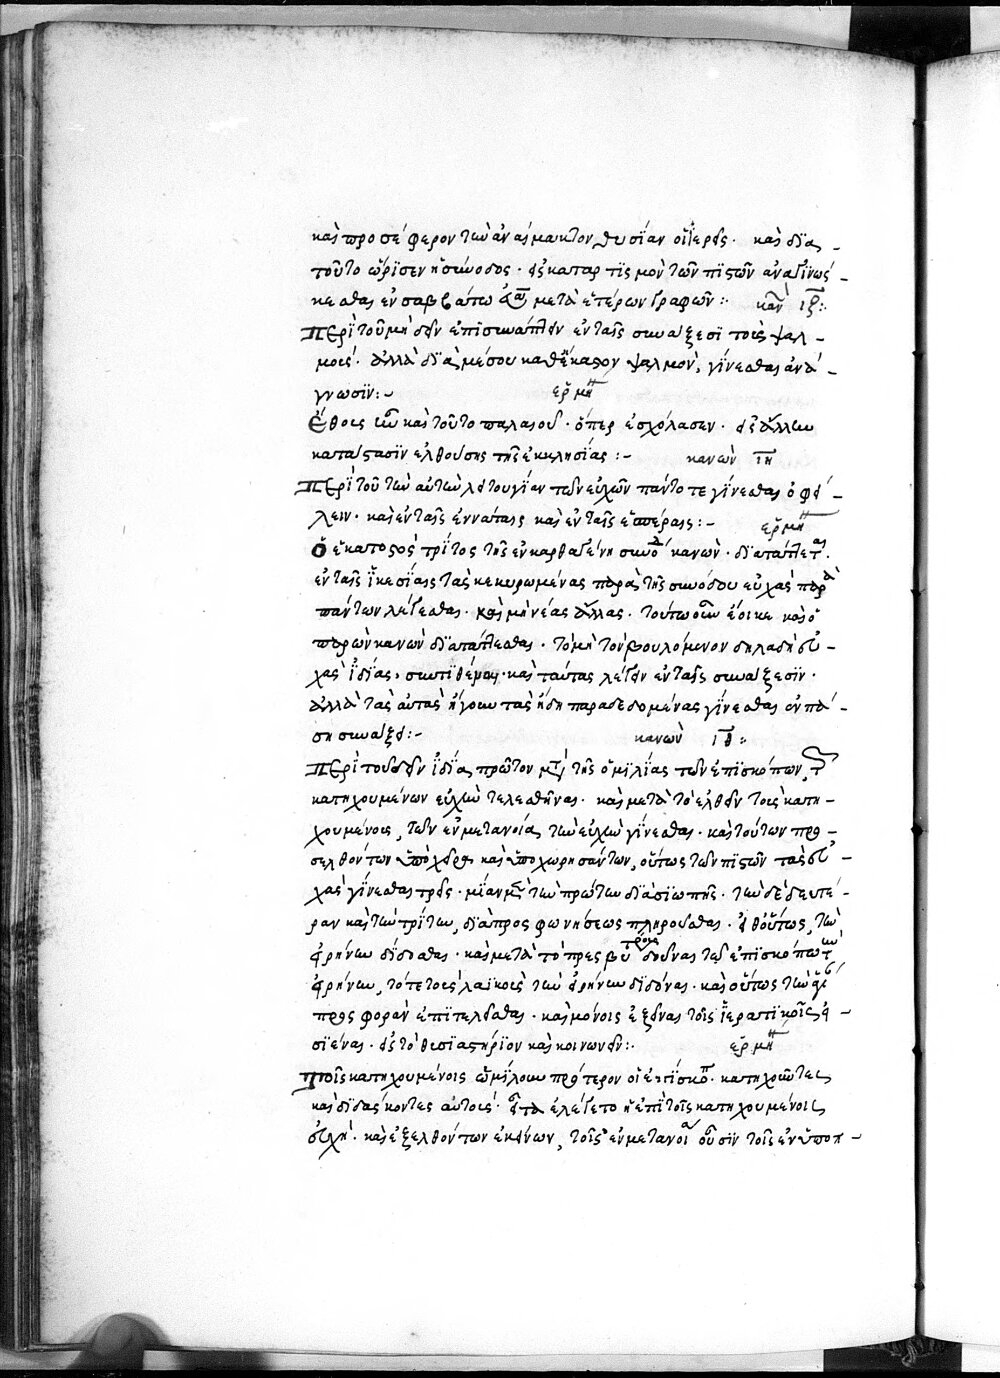 καὶ προσέφερον τὴν ἀναίμακτον θυσίαν οἱ ἱερεῖς· καὶ διὰ
τοῦτο ὥρισεν ἡ σύνοδος· εἰς καταρτισμὸν τῶν πιστῶν ἀναγινώσ-
κεσθαι ἐν σαββάτω εὐα μετὰ ἑτέρων γραφῶν:· καν ιζ:
Περὶ τοῦ μὴ δεῖν ἐπισυνάπτειν ἐν ταῖς συνάξεσι τοὺς ψαλ-
μούς· ἀλλὰ διὰ μέσου καθ' ἕκαστον ψαλμὸν, γίνεσθαι ἀνά-
γνωσιν:- ἑρμη
Ἔθος ἦν καὶ τοῦτο παλαιὸν· ὅπερ ἐσχόλασεν· εἰς ἄλλην
κατάστασιν ἐλθούσης τῆς ἐκκλησίας:- κανὼν ιη
Περὶ τοῦ τὴν αὐτὴν λειτουργίαν τῶν εὐχῶν πάντοτε γίνεσθαι ὀφεί-
λειν· καὶ ἐν ταῖς ἐννάταις καὶ ἐν ταῖς ἑσπέραις:- ἑρμη
Ὁ ἑκατοστὸς τρίτος τῆς ἐν καρθαγένη συνοδ κανὼν· διατάττεται·
ἐν ταῖς ἱκεσίαις τὰς κεκυρωμένας παρὰ τῆς συνόδου εὐχὰς παρὰ
πάντων λέγεσθαι· καὶ μὴ νέας ἄλλας· τούτω οὖν ἔοικε καὶ ὁ
παρὼν κανὼν διατάττεσθαι· τὸ μὴ τὸν βουλόμενον δηλαδὴ εὐ-
χὰς ἰδίας, συντιθέναι· καὶ ταύτας λέγειν ἐν ταῖς συνάξεσιν·
ἀλλὰ τὰς αὐτὰς ἤγουν τὰς ἤδη παραδεδομένας γίνεσθαι ἐν πά-
ση συνάξει:- κανὼν ιθ:
Περὶ τοῦ δεῖν ἰδία πρῶτον μετὰ τῆς ὁμιλίας τῶν ἐπισκόπων, τ
κατηχουμένων εὐχὴν τελεσθῆναι· καὶ μετὰ τὸ ἐλθεῖν τοὺς κατη-
χουμένους, τῶν ἐν μετανοία τὴν εὐχὴν γίνεσθαι· καὶ τούτων προ-
σελθόντων ὑπὸ χεῖρα καὶ ὑποχωρησάντων, οὕτως τῶν πιστῶν τὰς εὐ-
χὰς γίνεσθαι τρεῖς· μίαν μὲν τὴν πρώτην διὰ σιωπῆς· τὴν δὲ δευτέ-
ραν καὶ τὴν τρίτην, διὰ προσφωνήσεως πληροῦσθαι· εἶθ' οὕτως, τὴν
εἰρήνην δίδοσθαι· καὶ μετὰ τὸ πρεσβυτέρους δοῦναι τῶ ἐπισκόπω τὴν
εἰρήνην, τότε τοὺς λαϊκοὺς τὴν εἰρήνην διδόναι· καὶ οὕτως τὴν ἁγί
προσφορὰν ἐπιτελεῖσθαι· καὶ μόνοις ἐξεῖναι τοῖς ἱερατικοῖς εἰ-
σιέναι· εἰς τὸ θυσιαστήριον καὶ κοινωνεῖν:· ἑρμη
Τοῖς κατηχουμένοις ὡμίλουν πρότερον οἱ ἐπίσκοπ· κατηχοῦντες
καὶ διδάσκοντες αὐτοὺς· εἶτα ἐλέγετο ἡ ἐπὶ τοῖς κατηχουμένοις
εὐχὴ· καὶ ἐξελθόντων ἐκείνων, τοῖς ἐν μετανοία οὖσιν τοῖς ἐν ὑποπ-